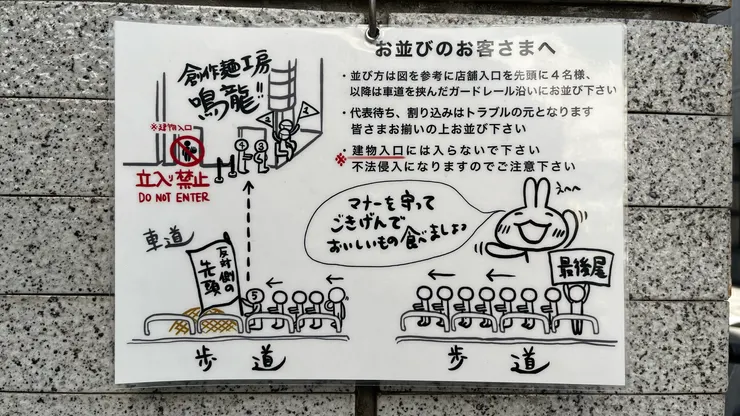 お並びのお客さまへ
・並び方は図を参考に店舗入口を先頭に4名様、
以降は車道を挟んだガードレール沿いにお並び下さい
・代表待ち、割り込みはトラブルの元となります
皆さまお揃いの上お並び下さい
・建物入口には入らないで下さい
※不法侵入になりますのでご注意下さい
創作麺工房
鳴龍!!
※建物入口
立入り禁止
DO NOT ENTER
4
3
2
1
マナーを守って
ごきげんで
おいしいもの食べましょっ
えへへ
車道
反対側の
先頭
5
最後尾
歩道
歩道